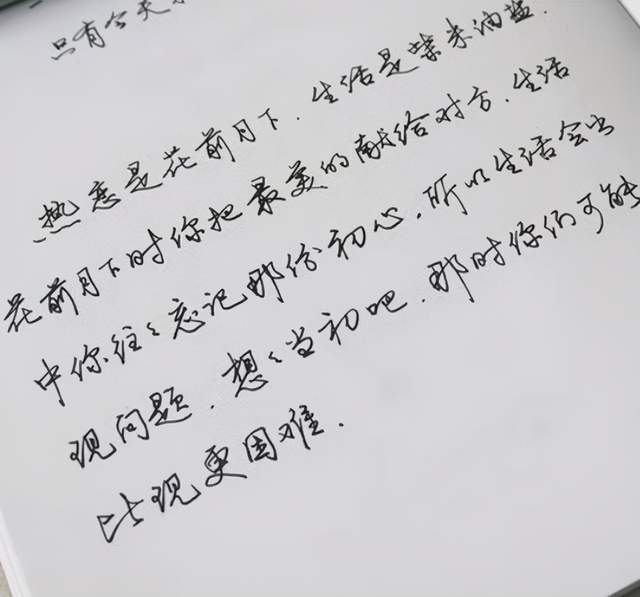 只有今天
热恋是花前月下.生活是柴米油盐.
花前月下时你把最美的献给对方.生活
中你往々忘记那份初心.所以生活会出
现问题.想々当初吧.那时你们可能
比现更困难.